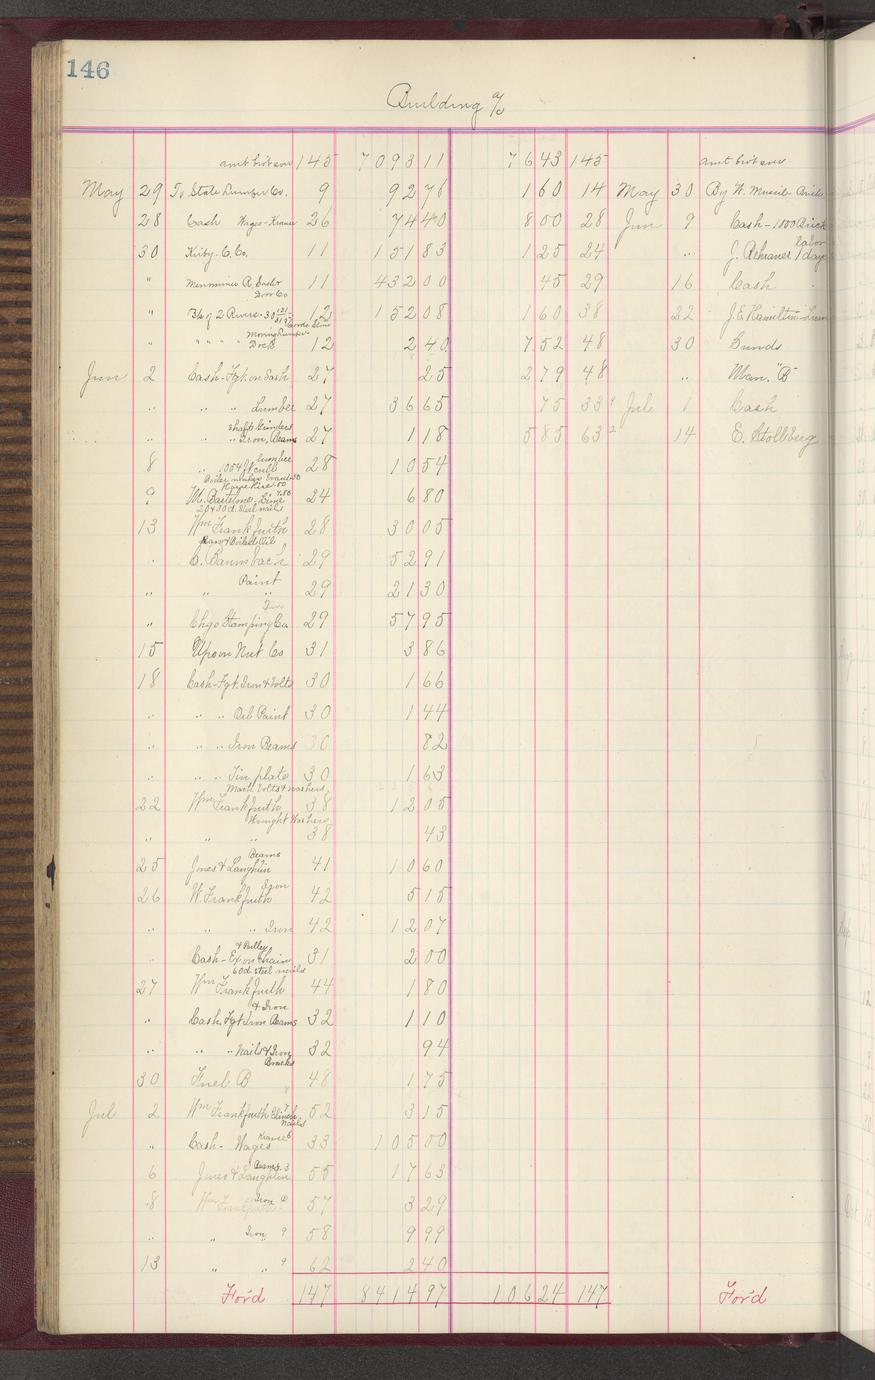 146
Building a/c
amt brot over 145 7093 11 76 43 145 amt brot over
May 29 To State Lumber Co. 9 92 76 1 60 14 May 30 By W. Brick
28 Cash Wages- 26 74 40 8 00 28 Jun 9 Cash - 1000 Brick
30 Kirby C. Co. 11 151 83 1 25 24 " J. labor 1 day
" A. Sash & Door Co 11 432 00 45 29 16 Cash
" 2 Rivers 12 152 08 1 60 38 22 J. E. Hamilton
" " " " Moving Lumber Dock 12 2 40 7 52 48 30 Sunds
Jun 2 Cash-Fgt. on Sash 27 25 2 79 48 " Man. "B"
" " " Lumber 27 36 65 75 33 Jul 1 Cash
" " " Shafts Grinders Iron, Beams 27 1 18 5 85 63 14 E. Stollberg
8 " 1054 ft cull lumber 28 10 54
9 M. Bartelme- Lime 24 6 80
20 & 30 d. Steel nails
13 Wm Frankfurth 28 30 05
Raw & Boiled Oil
" C. Baumbach 29 52 91
" " Paint " 29 21 30
Tin
" Chgo Stamping Co 29 57 95
15 Upson Nut Co 31 3 86
18 Cash-Fgt. Iron & Bolts 30 1 66
" " " Oil Paint 30 1 44
" " " Iron Beams 30 82
" " " Tin plate 30 1 63
Mach. Bolts & washers
22 Wm Frankfurth 38 12 05
Wrought Washers
" " " 38 43
Beams
25 Jones & Laughlin 41 10 60
Iron
26 W. Frankfurth 42 5 15
" " " Iron 42 12 07
& Pulley
" Cash - Ex on Chain 31 2 00
60d. steel nails
27 Wm Frankfurth 44 1 80
& Iron
" Cash. Fgt Iron Beams 32 1 10
" " " Nails & Iron 32 94
30 Fuel B 48 1 75
Jul 2 Wm Frankfurth nails 52 3 15
" Cash- Wages 33 105 00
Beams. 3
6 Jones & Laughlin 55 17 63
8 Wm Frankfurth Iron 57 3 29
" " Iron 9 58 9 99
13 " " 9 62 2 40
For'd 147 8414 97 106 24 147 For'd